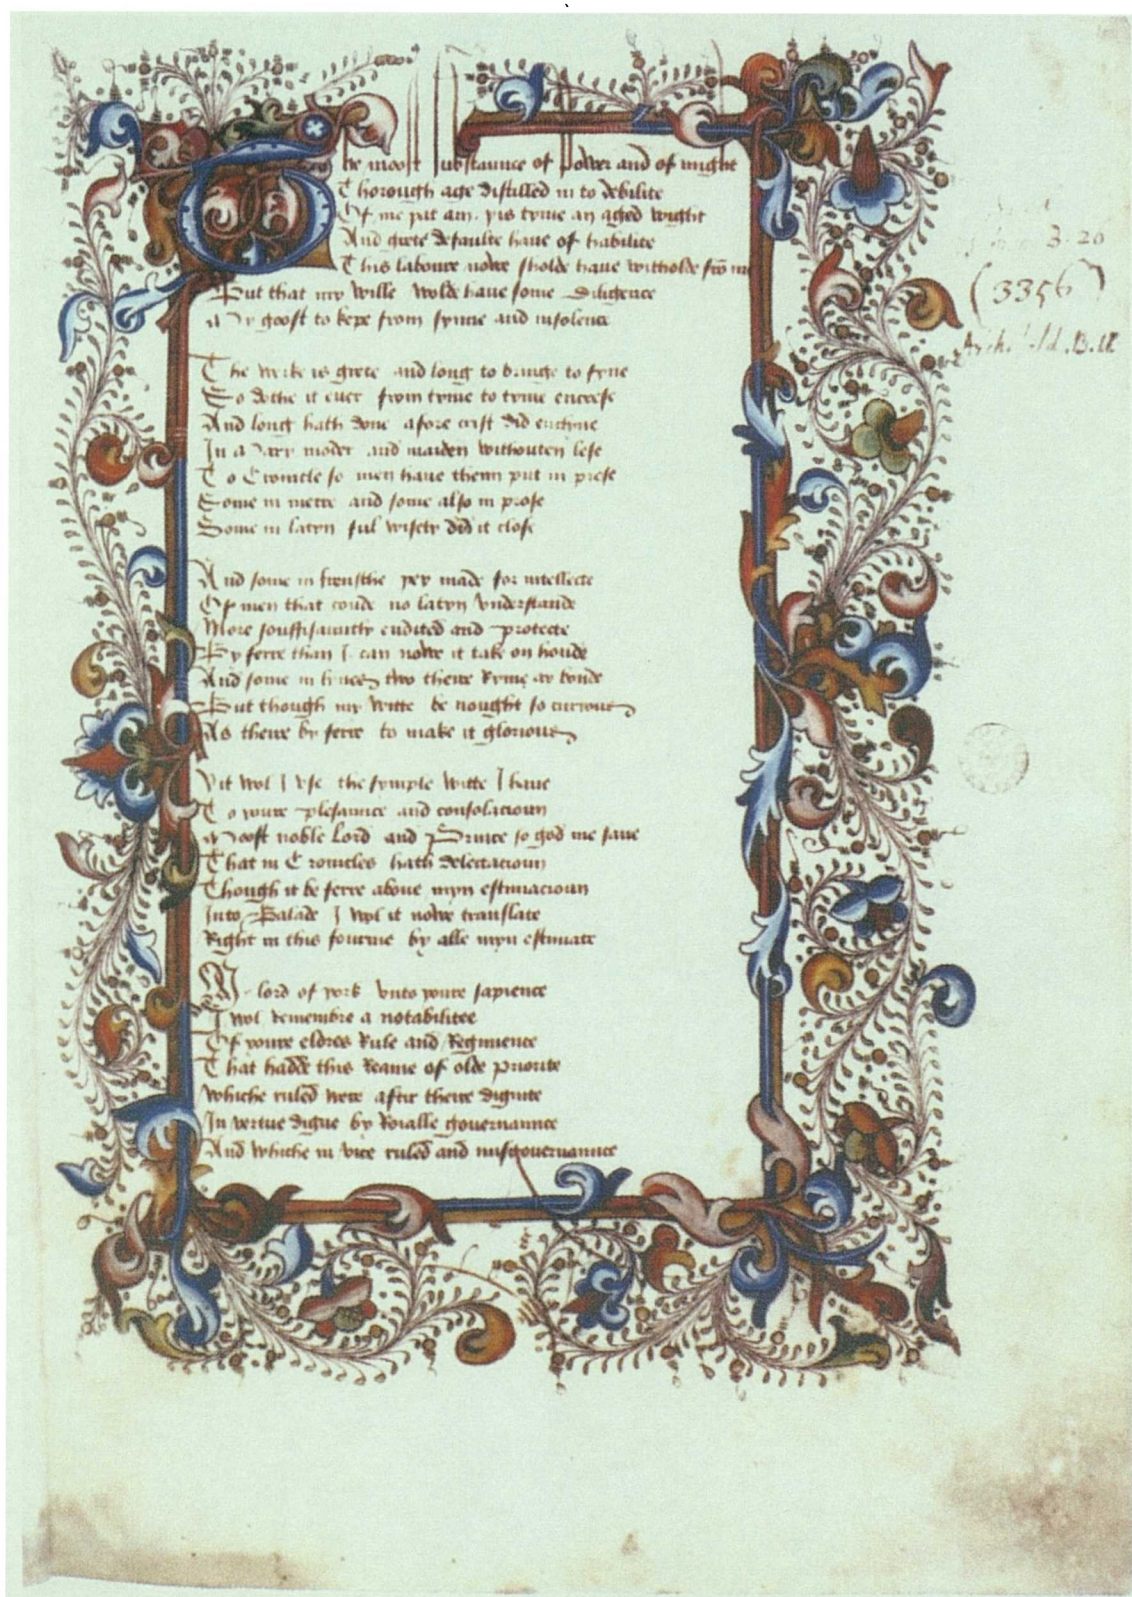 The moost substaunce of power and of might
Thorough age distilled in to debilite
Of me þat am. þis tyme an aged wight
And grete defaulte have of habilite
This laboure nowe sholde have witholde fro me
But that my wille wolde have some diligence
My goost to kepe from synne and insolence
The werke is grete and long to bringe to fyne
So dothe it ever from tyme to tyme encrese
And long hath done afore crist did enclyne
In Mary moder and maiden withouten lese
To Cronicle so men have theim put in prese
Some in metre and some also in prose
Some in latyn ful wisely did it close
And some in frensshe þey made for intellecte
Of men that coude no latyn understande
More souffisauntly endited and protecte
By ferre than I can nowe it take on honde
And some in lynes two theire Ryme as bonde
But though my witte be nought so curious
As theire by ferre to make it glorious
Yit wol I use the symple witte I have
To youre plesaunce and consolacioun
Moost noble Lord and Prince so god me save
That in Cronicles hath delectacioun
Though it be ferre above myn estimacioun
Into Balade I wol it nowe translate
Right in this fourme by alle myn estimate
My lord of york unto youre sapience
I wol remembre a notabilitee
Of youre eldres Rule and Regimence
That hadde this Reame of olde priorite
Whiche ruled were aftir theire dignite
In vertue digne by Roialle governaunce
And whiche in vice ruled and misgovernaunce
B.20
(3356)